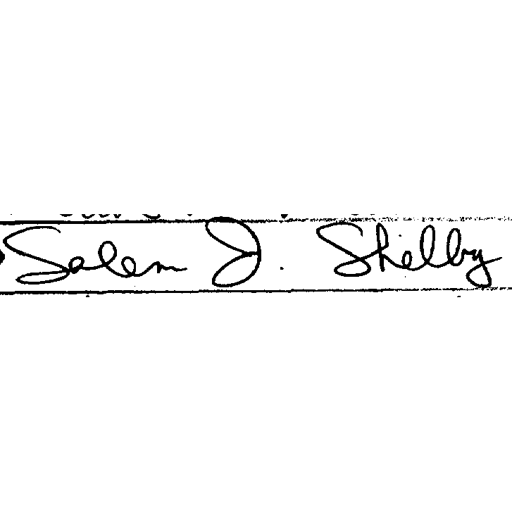 Salem J. Shelby